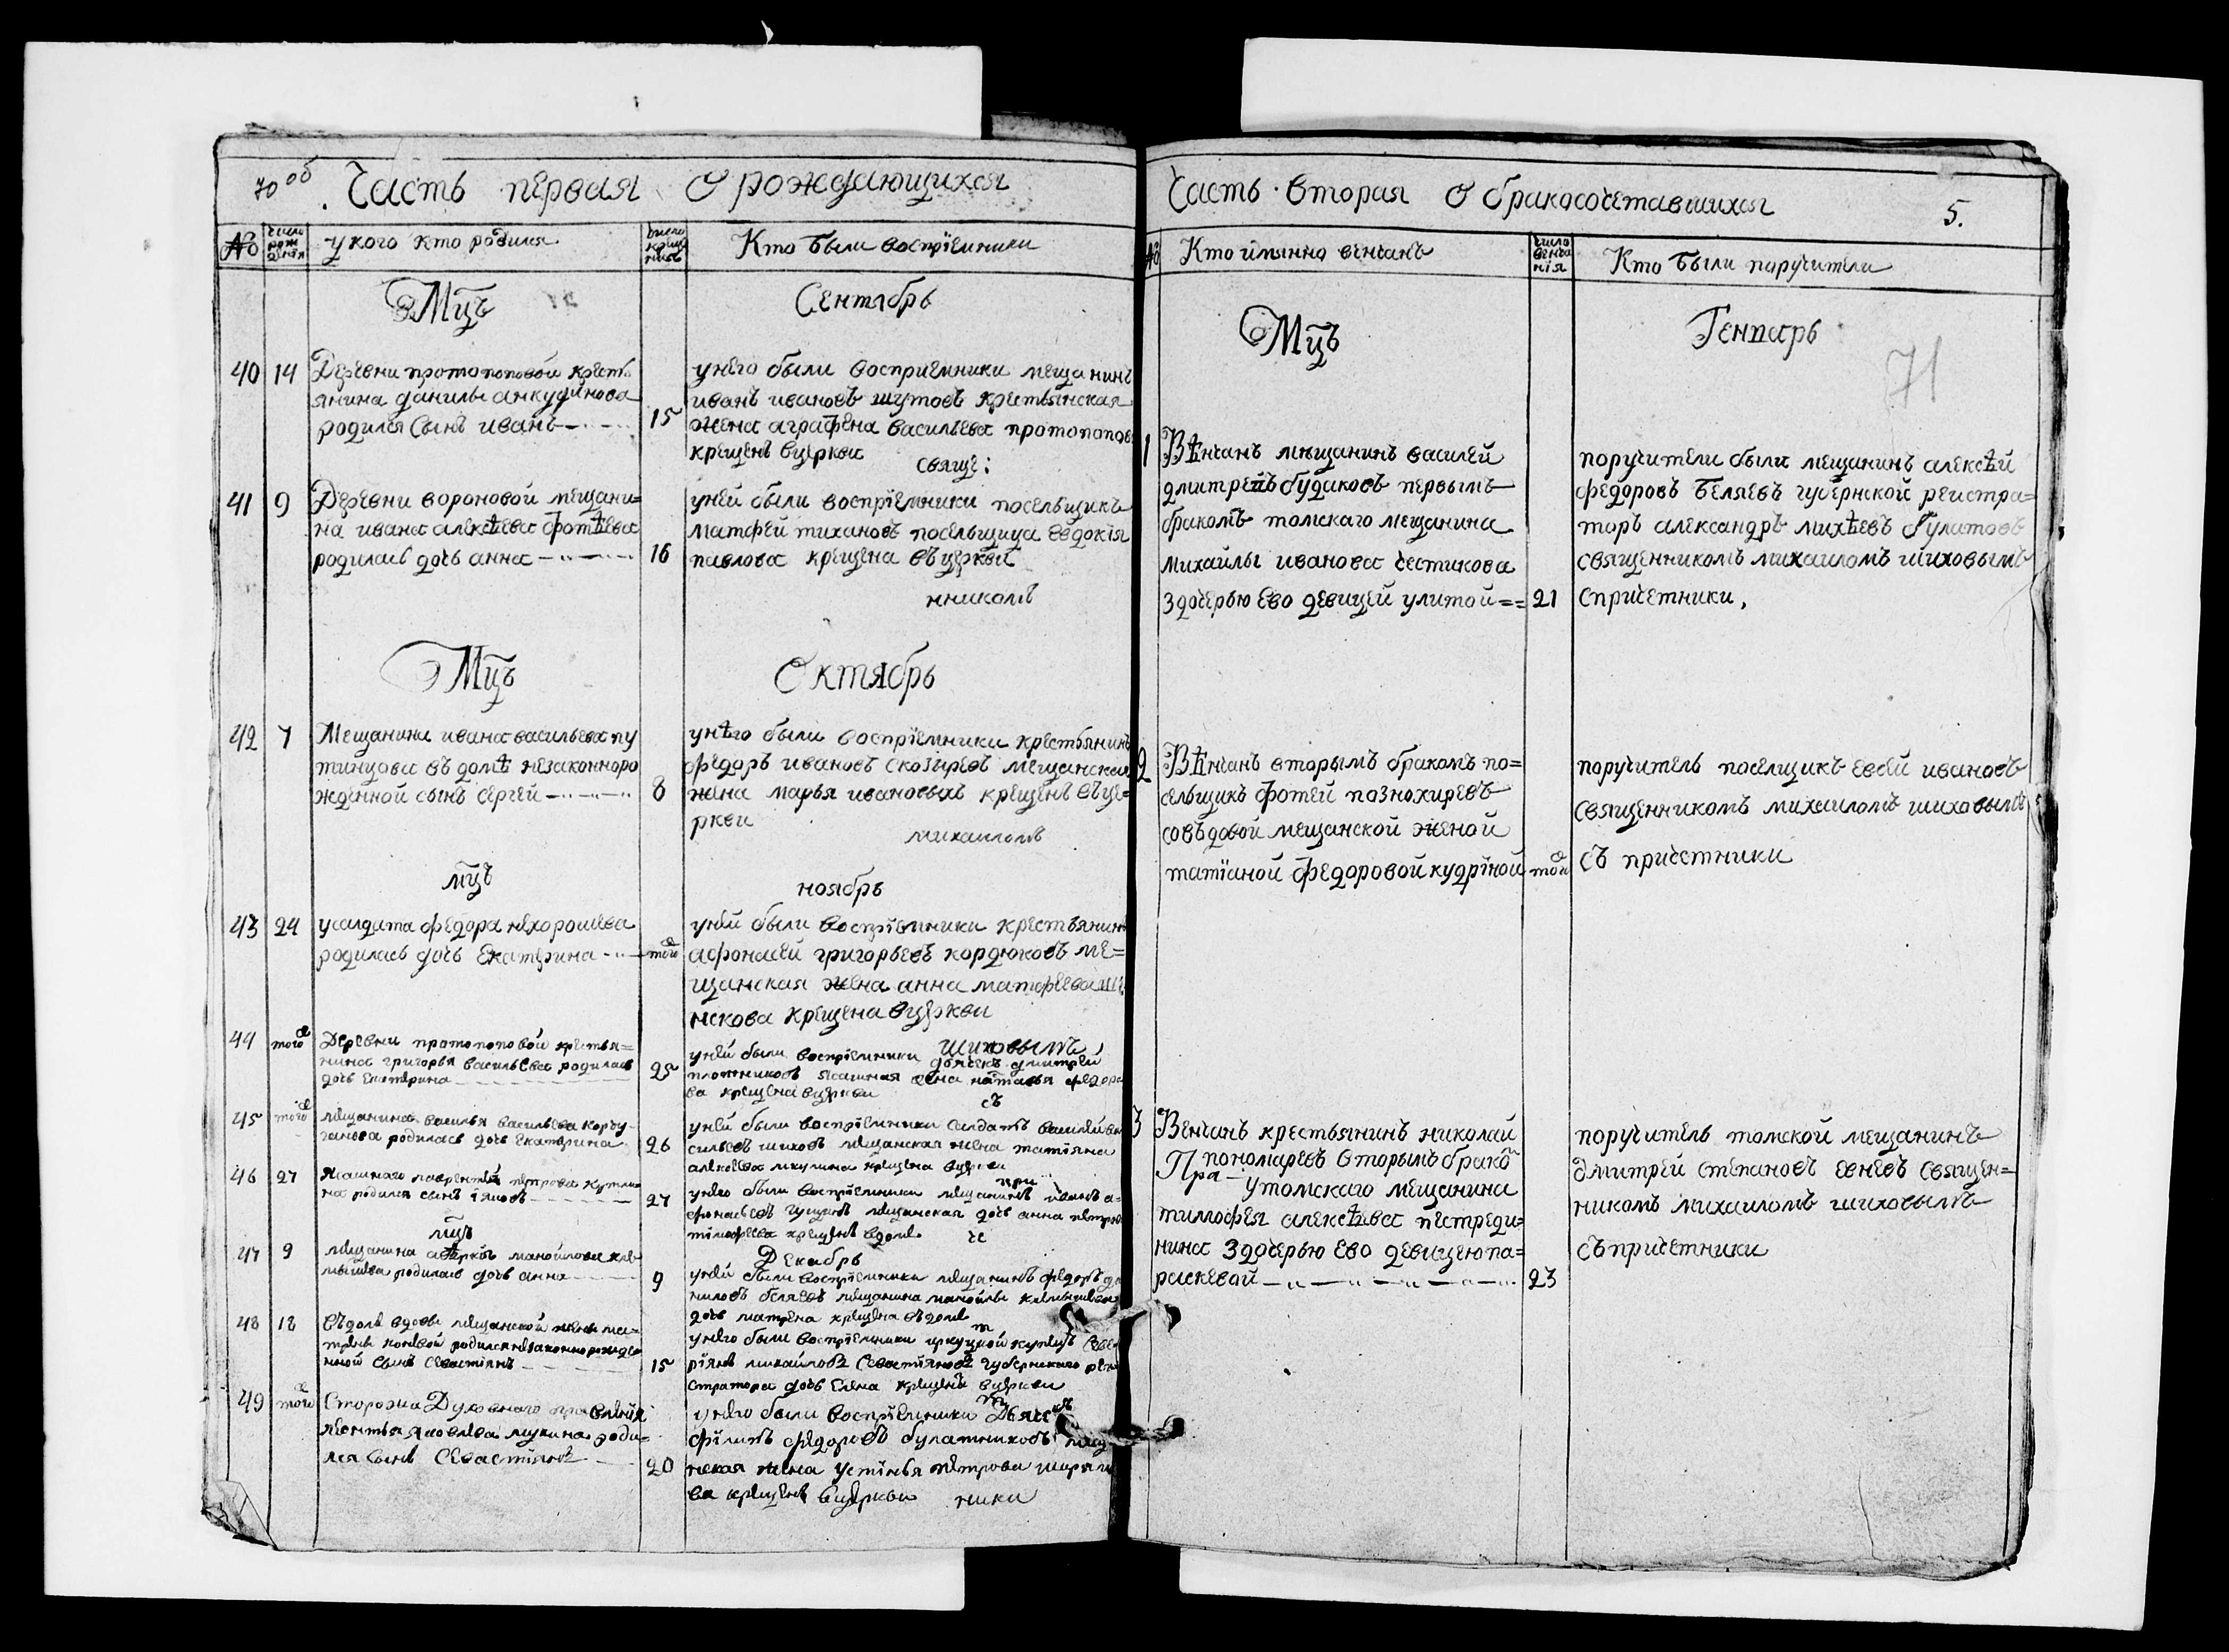 70 об
Часть первая О рождающихся
№
число рож дѣнiя
у кого кто родился
число крщенiя
Кто были воспрiемники
Мцъ
Сентябрь
40 14 Деревни протопоповой кресть
янина данилы анкудинова
родился сынъ иванъ 15
унего были восприемники мещанинъ
иванъ ивановъ шутовъ крестьянская
жена аграфена васильева протопопов
крещенъ вцеркви
свяще:
41 9 Деревни вороновой мещани=
на ивана алексѣева фотѣева
родилась дочь анна 16
уней были воспрiемники посельщикъ
матфей тихановъ посельщица евдокiя
павлова крещена въ церкви
нникомъ
Мцъ
Октябрь
42 7 Мещанина ивана васильева пу
тинцова въ домѣ незаконноро
жденной сынъ сергей 8
унѣго были воспрiемники крестьянинъ
федоръ ивановъ скозыревъ мещанская
жена марья ивановыхъ крещенъ въ це=
ркви
михаиломъ
мцъ
ноябрь
43 24 усалдата федора нехорошева
родилась дочь Екатерина того
уней были воспрiемники крестьянинъ
афонасей григорьевъ кордюковъ ме=
щанская жена анна матфеева ши
нскова крещена вцеркви
шиховымъ
44 того Деревни протопоповой крестья=
нина григорья васильева родилась
дочь Екатерина 25
уней были воспрiемники дьячекъ дмитрей
плотниковъ ясашная жена наталья федоро
ва крещена вцеркви
съ
45 того мещанина василья васильева корчу
ганова родилась дочь Екатерина 26
уней были воспрiемники салдатъ василей ва
сильевъ шиховъ мещанская жена татiяна
алексеева крещена вцеркви
при
46 27 Ясашного лаврентья петрова
на родился сынъ iяковъ 27
унего были воспрiемники мещанинъ иванъ а=
фонасьевъ мещанская дочь анна петров
тимофеева крещенъ вдоме
че
мцъ
Декабрь
47 9 мещанина аверкiя манойлова
родилась дочь анна 9
уней были воспрiемники мещанинъ федоръ да
ниловъ беляевъ мещанина манойлы
дочь матрена крещена въ доме
т
48 12 Въ доме вдовы мещанской жены ма=
трены родился незаконнорожде
нной сынъ Севастiянъ 15
унего были воспрiемники иркуцкой купецъ Севе
рiянъ михайловъ Севастiяновъ губернскаго реги
стратора дочь Елена крещенъ вцеркви
49 того Сторожа Духовнаго правленiя
леонтья яковлева мукина роди=
лся сынъ Севастiянъ 20
унего были воспрiемники Дьячекъ
филипъ федоровъ булатниковъ меща
нская жена Устинья петрова
ва крещенъ вцеркви
ники
Часть вторая О бракосочетавшихся
5.
№
Кто имянно венчанъ
число венча нiя
Кто были поручители
Мцъ
Генварь
71
1 Вѣнчанъ мѣщанинъ василей
дмитревъ будаковъ первымъ
бракомъ томскаго мещанина
михайлы иванова честикова
здочерью Ево девицей улитой == 21
поручители были мещанинъ алексѣй
федоровъ беляевъ губернской регистра=
торъ александръ михѣевъ Гулатовъ
священникомъ михаиломъ шиховымъ
спричетники,
2 Вѣнчанъ вторымъ бракомъ по=
сельщикъ фотей познохиревъ
совъдовой мещанской женой
татiаной федоровой кудрiной того
поручитель поселщикъ евсей ивановъ
священникомъ михаиломъ шиховымъ
съ причетники
3 Венчанъ крестьянинъ николай
пономаревъ вторымъ брако
Пра
утомскаго мещанина
тимофея алексѣева пестреди=
нина здочерью Ево девицею па=
раскевой 23
поручитель томской мещанинъ
дмитрей степановъ евневъ священ=
никомъ михаиломъ шиховымъ
съ причетники